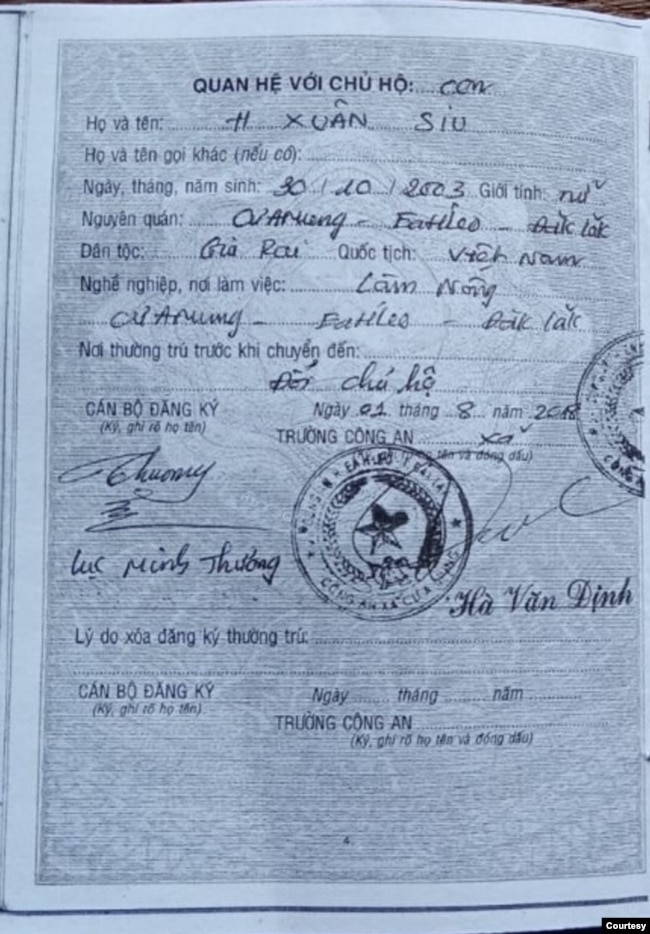 QUAN HỆ VỚI CHỦ HỘ: con
Họ và tên: H XUÂN SIU
Họ và tên gọi khác (nếu có):
Ngày, tháng, năm sinh: 30 / 10 / 2003 Giới tính: nữ
Nguyên quán: Cư Amung - EaHleo - Đăk lăk
Dân tộc: Gia Rai Quốc tịch: Việt Nam
Nghề nghiệp, nơi làm việc: Làm Nông
Cư Amung - EaHleo - Đăk lăk
Nơi thường trú trước khi chuyển đến:
Đổi chủ hộ
CÁN BỘ ĐĂNG KÝ Ngày 01 tháng 8 năm 2018
(Ký, ghi rõ họ tên) TRƯỞNG CÔNG AN xã
tên và đóng dấu)
Thương
Lục Minh Thương
CÔNG AN XÃ CƯ A MUNG
Hà Văn Định
Lý do xóa đăng ký thường trú:
CÁN BỘ ĐĂNG KÝ Ngày tháng năm
(Ký, ghi rõ họ tên)
TRƯỞNG CÔNG AN
(Ký, ghi rõ họ tên và đóng dấu)
4
Courtesy